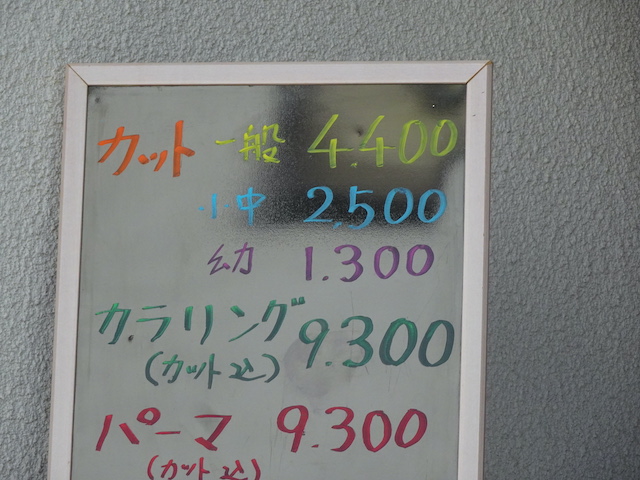 カット 一般 4.400
小中 2,500
幼 1.300
カラリング 9.300
(カット込)
パーマ 9.300
(カット込)